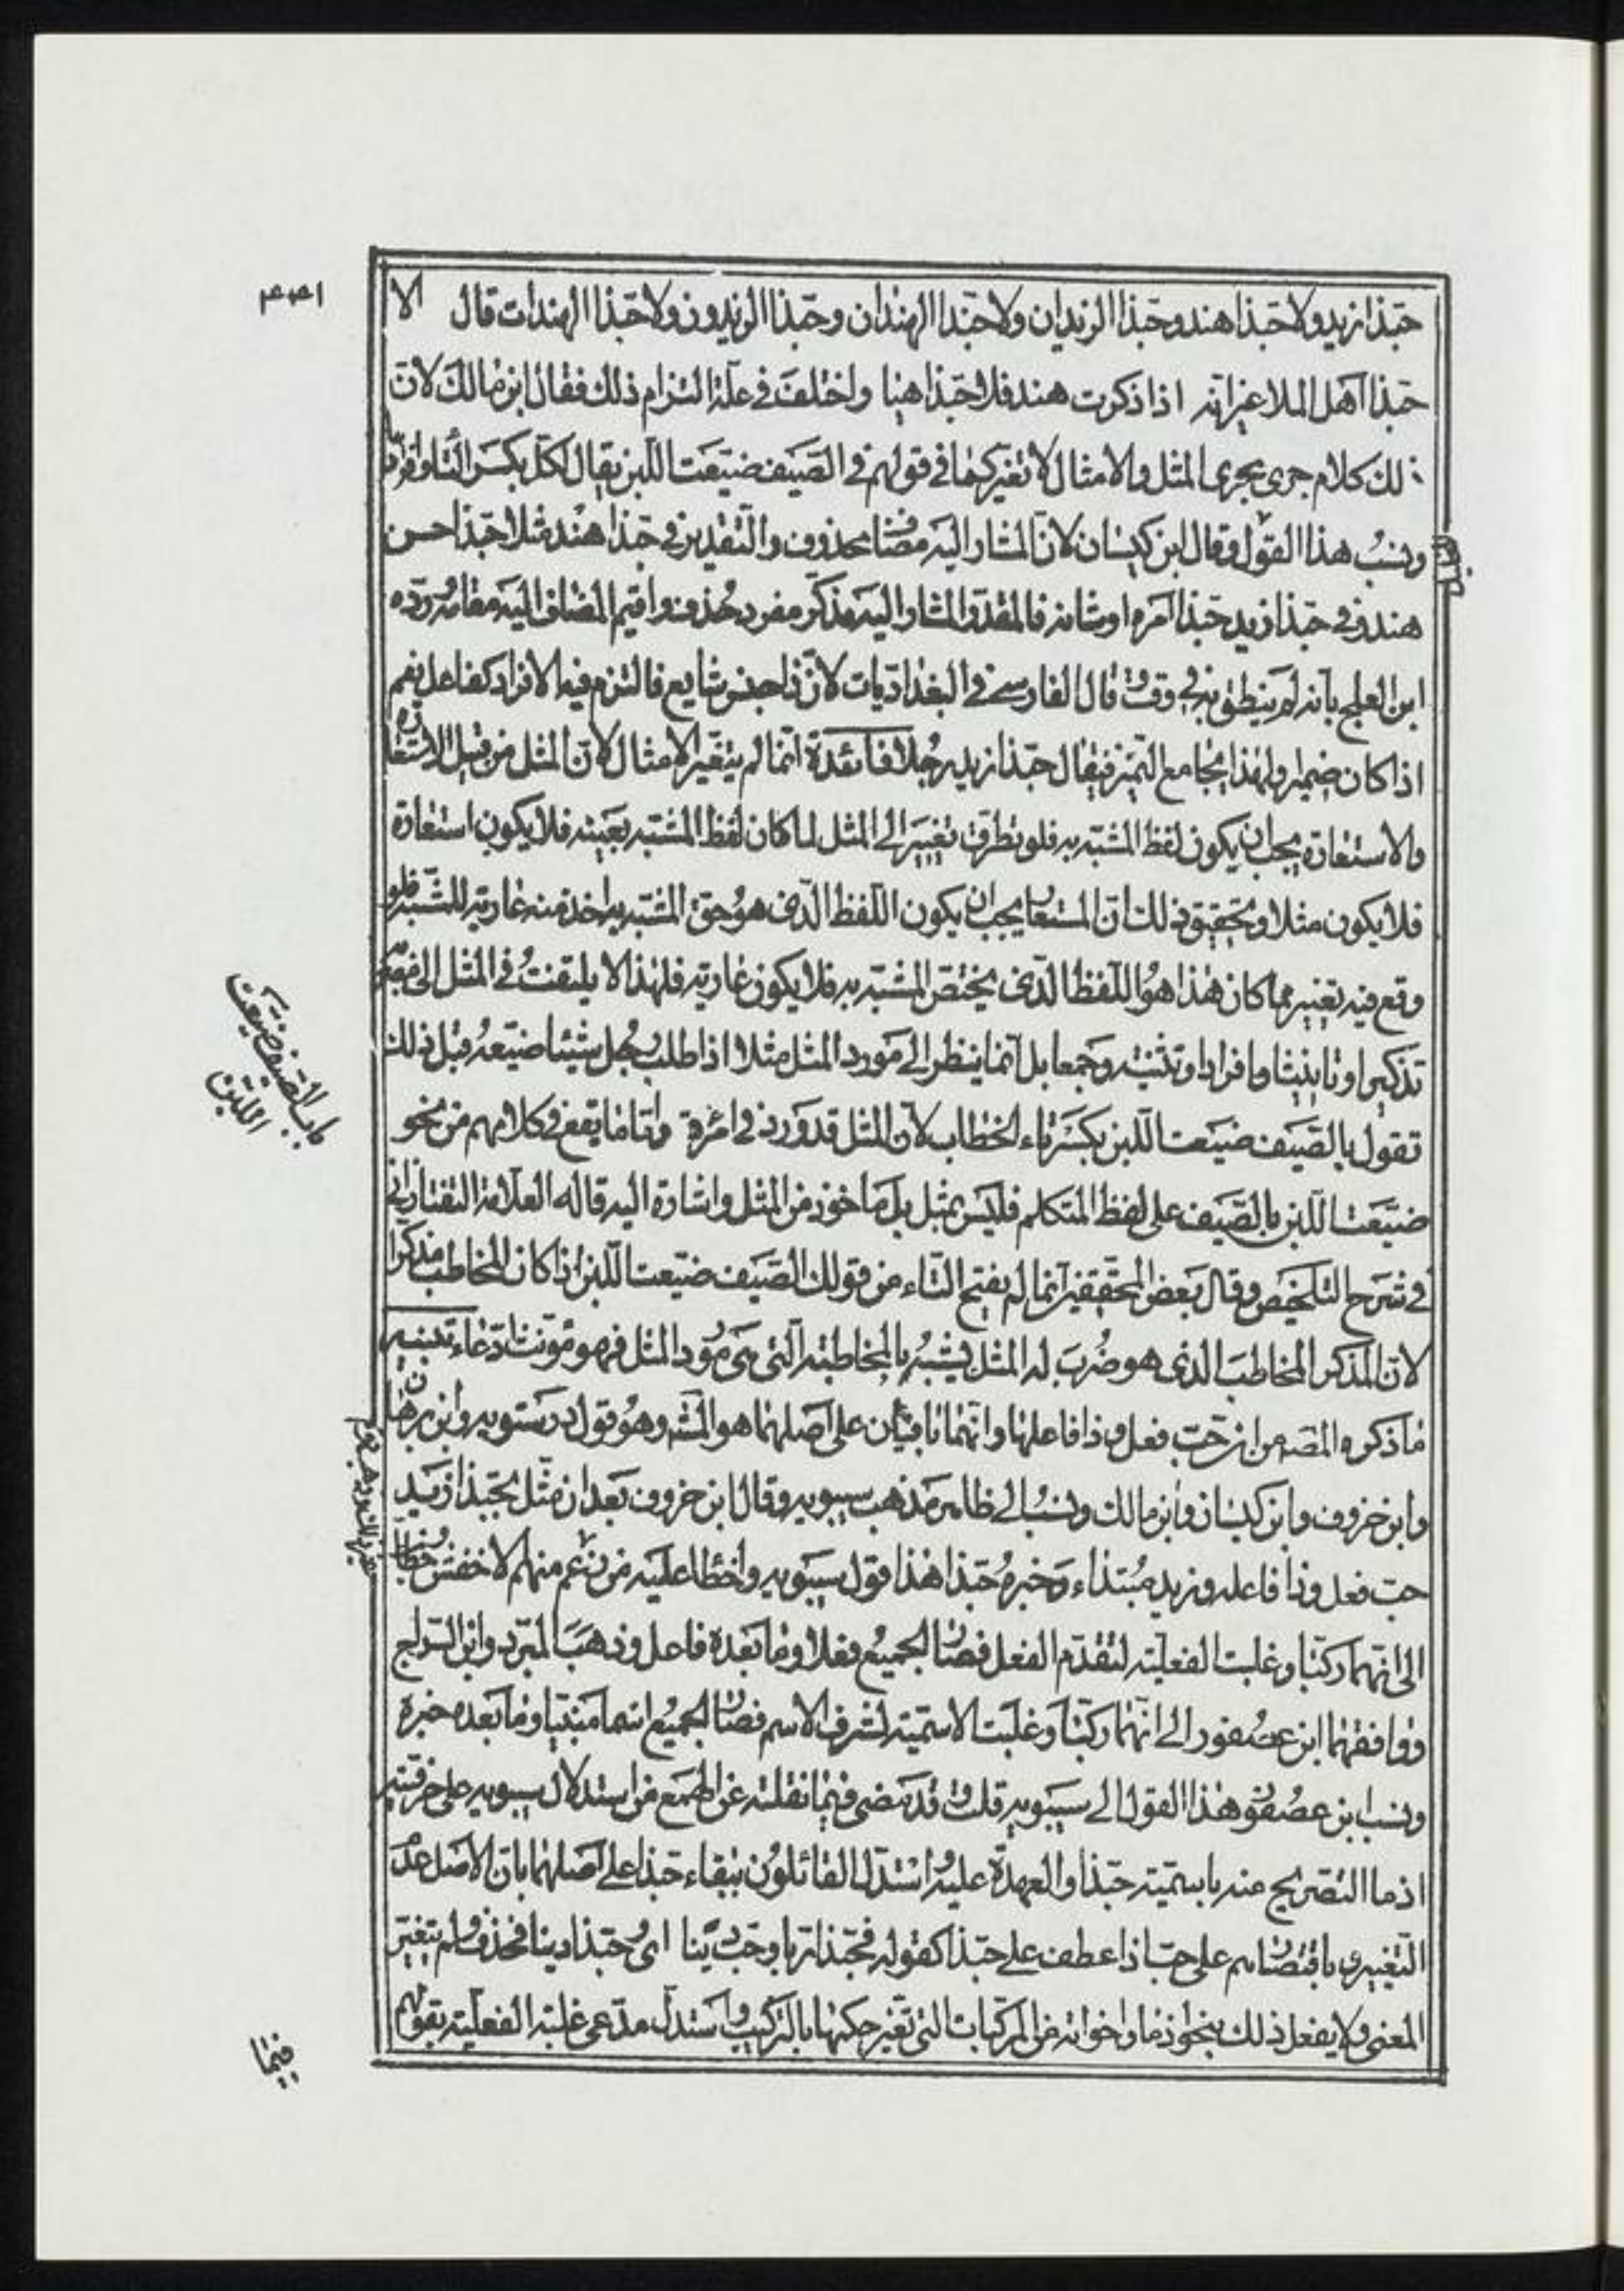 حبّذا زيد ولا حبّذا هند وحبّذا الزيدان ولا حبّذا الهندان وحبّذا الزيدون ولا حبّذا الهندات قال الا
حبّذا اهل الملا غير انه اذا ذكرت هند فلا حبّذا هيا واختلف في علّة التزام ذلك فقال ابن مالك لانّ
ذلك كلام جرى مجرى المثل والامثال لا تغيّر كما في قولهم في الصّيف ضيّعت اللّبن يقال لكلّ بكسر التّاء
ونسب هذا القول وقال ابن كيسان لانّ المشار اليه مضاف محذوف والتّقدير في حبّذا هند مثلا حبّذا حسن
هند وفي حبذا زيد حبّذا امره او شانه فالمقدّر المشار اليه مذكّر مفرد حذف واقيم المضاف اليه مقامه وردّه
ابن العلج بانه لم ينطق به في وقت وقال الفارسي في البغداديات لانّ ذا جنس شايع فالتزم فيه الافراد كفاعل نعم
اذا كان ضميرا ولهذا يجامع التّميز فيقال حبّذا زيد رجلا فائدة انّما لم يتغيّر الامثال لانّ المثل من قبيل الاستعارة
والاستعارة يجب ان يكون لفظ المشبّه به فلو تطرق تغيير الى المثل لما كان لفظ المشبّه به بعينه فلا يكون استعارة
فلا يكون مثلا وتحقيق ذلك انّ المستعار يجب ان يكون اللّفظ الّذى هو حق المشبّه به اخذ منه عارية للمشبّه فلو
وقع فيه تغيير مما كان هذا هو اللّفظ الّذى يختصّ المشبّه به فلا يكون عارية فلهذا لا يلتفت في المثل الى مضربه
تذكيرا وتانيثا وافرادا وتثنيه وجمعا بل انّما ينظر الى مورد المثل مثلا اذا طلب رجل شيئا ضيّعه قبل ذلك
تقول بالصّيف ضيّعت اللّبن بكسر تاء الخطاب لانّ المثل قد ورد في امرءة وامّا ما يقع في كلامهم من نحو
ضيّعت اللّبن بالصّيف على لفظ المتكلم فليس بمثل بل ماخوذ من المثل واشارة اليه قاله العلّامة التفتازاني
في شرح التلخيص وقال بعض المحقّقين انّما لم يفتح التّاء من قولك الصّيف ضيّعت اللّبن اذا كان المخاطب مذكرا
لانّ المذكر المخاطب الذى هو ضرب له المثل يشبه بالمخاطبة الّتى هى مورد المثل فهو مؤنث ادّعاء تنبيه
ما ذكره المصـ من انّ حبّ فعل وذا فاعلها وانّهما باقيان على اصلهما هو المشـ وهو قول درستويه وابن برهان
وابن خروف وابن كيسان وابن مالك ونسب الى ظاهر مذهب سيبويه وقال ابن خروف بعد ان مثّل بحبّذا زيد
حبّ فعل وذا فاعله وزيد مبتداء وخبره حبّذا هذا قول سيبويه واخطا عليه من زعم منهم الاخفش خطاب
الى انّهما ركّبا وغلبت الفعليّة لتقدّم الفعل فصار الجميع فعلا وما بعده فاعل وذهب المبرّد وابن السّراج
ووافقهما ابن عصفور الى انّهما ركّبا وغلبت الاسميّة لشرف الاسم فصار الجميع اسما مبتدا وما بعده خبره
ونسب ابن عصفور هذا القول الى سيبويه قلت وقد مضى فيما نقلته عن الهمع من استدلال سيبويه على حرفيّة
اذ ما التصريح منه باسميّة حبّذا والعهدة عليه واستدلّ القائلون ببقاء حبّذا على اصلهما بانّ الاصل عدم
التّغيير وباقتصارهم على حبّ اذا عطف على حبّذا كقوله فحبّذا ربّا وحبّ دينا اى وحبّذا دينا فحذف ولم يتغيّر
المعنى ولا يفعل ذلك بنحو اذما واخواته من المركّبات التى تغيّر حكمها بالتركيب واستدلّ مدّعى غلبة الفعليّة بقولهم
بالصّيف ضيّعت
اللّبن
فيما